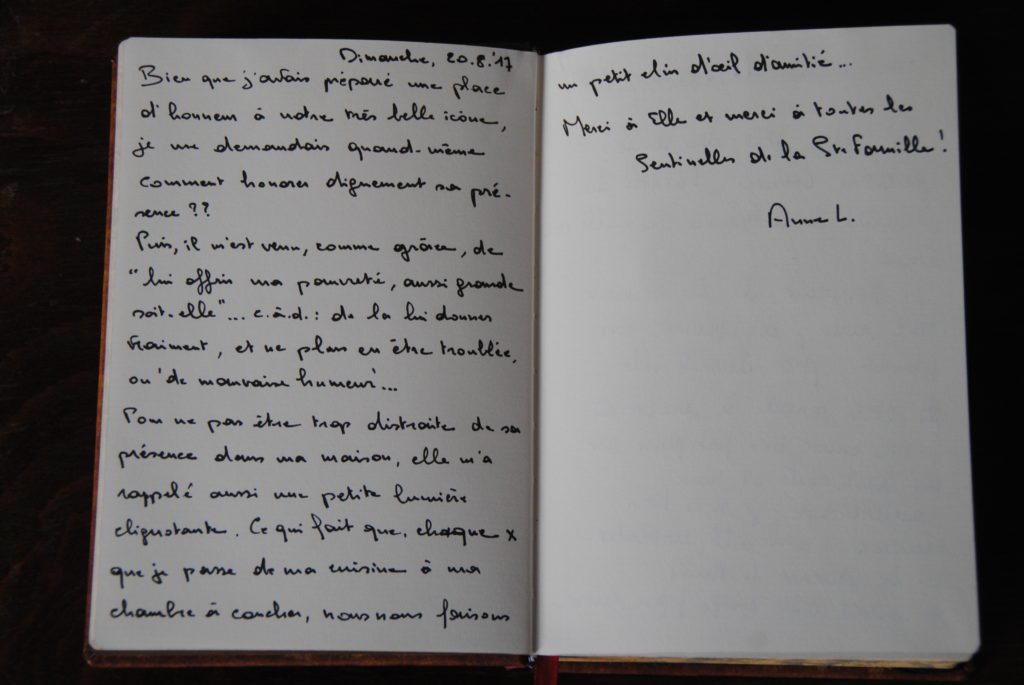 Dimanche, 20.8.'17
Bien que j'avais préparé une place
d'honneur à notre très belle icône,
je me demandais quand-même
comment honorer dignement sa pré-
sence ??
Puis, il m'est venu, comme grâce, de
"lui offrir ma pauvreté, aussi grande
soit-elle"... c.à.d.: de la lui donner
vraiment, et ne plus en être troublée,
ou 'de mauvaise humeur'...
Pour ne pas être trop distraite de sa
présence dans ma maison, elle m'a
rappelé aussi une petite lumière
clignotante. Ce qui fait que, chaque x
que je passe de ma cuisine à ma
chambre à coucher, nous nous faisons
un petit clin d'œil d'amitié...
Merci à Elle et merci à toutes les
Sentinelles de la Ste Famille !
Anne L.